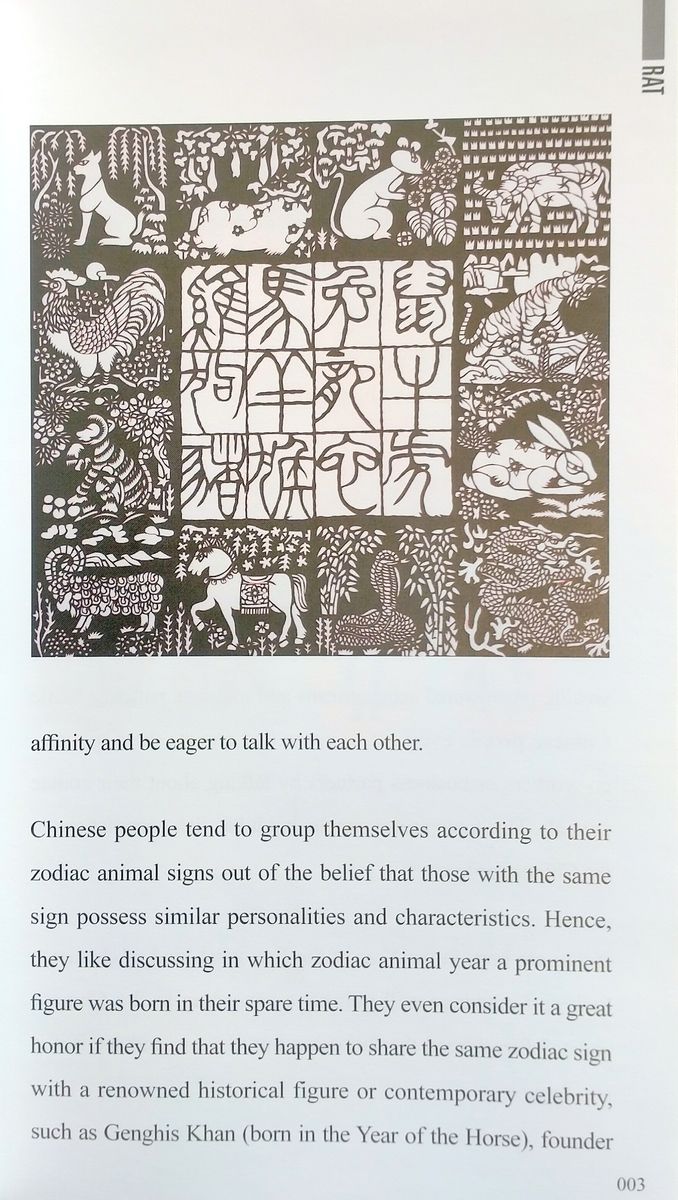 RAT
鼠牛虎
兔
馬羊猴
雞狗豬
affinity and be eager to talk with each other.
Chinese people tend to group themselves according to their
zodiac animal signs out of the belief that those with the same
sign possess similar personalities and characteristics. Hence,
they like discussing in which zodiac animal year a prominent
figure was born in their spare time. They even consider it a great
honor if they find that they happen to share the same zodiac sign
with a renowned historical figure or contemporary celebrity,
such as Genghis Khan (born in the Year of the Horse), founder
003